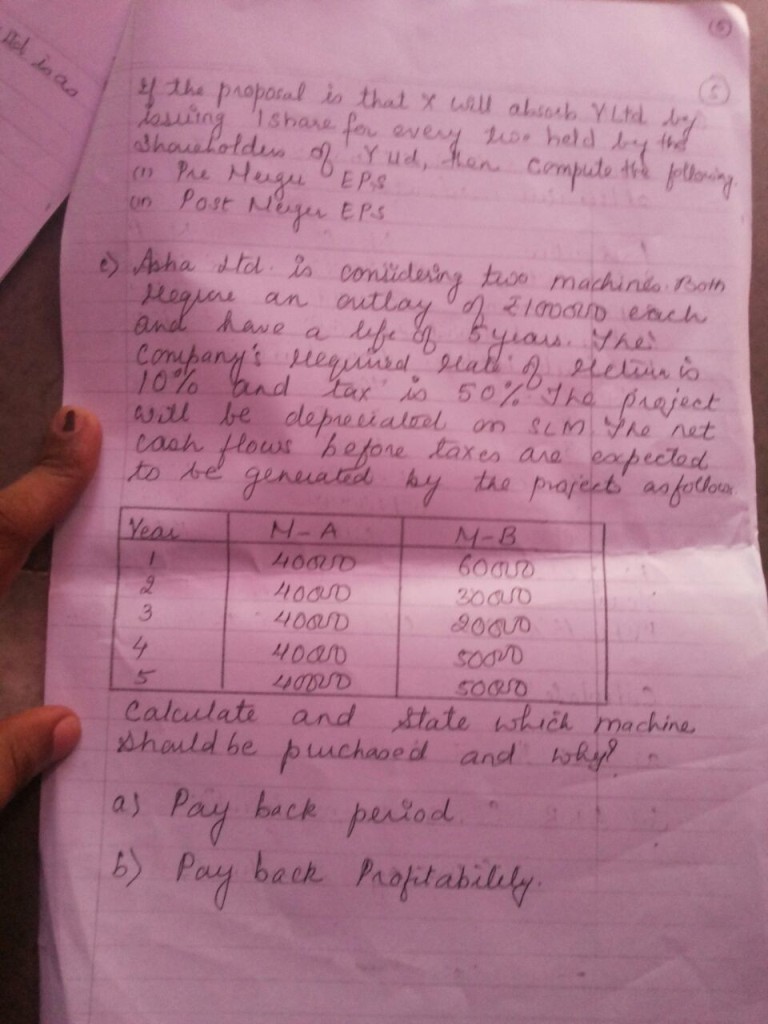 (5)
(5)
Itd is as
If the proposal is that X will absorb Y Ltd by
issuing 1 share for every two held by the
shareholders of Y Ltd, then compute the following.
(i) Pre Merger EPS
(ii) Post Merger EPS
c) Asha Ltd. is considering two machines. Both
require an outlay of ₹100000 each
and have a life of 5 years. The
Company's required rate of return is
10% and tax is 50% The project
will be depreciated on SLM The net
cash flows before taxes are expected
to be generated by the projects as follows
Year M-A M-B
1 40000 60000
2 40000 30000
3 40000 20000
4 40000 50000
5 40000 50000
Calculate and state which machine
should be purchased and why?
a) Pay back period
b) Pay back Profitability.